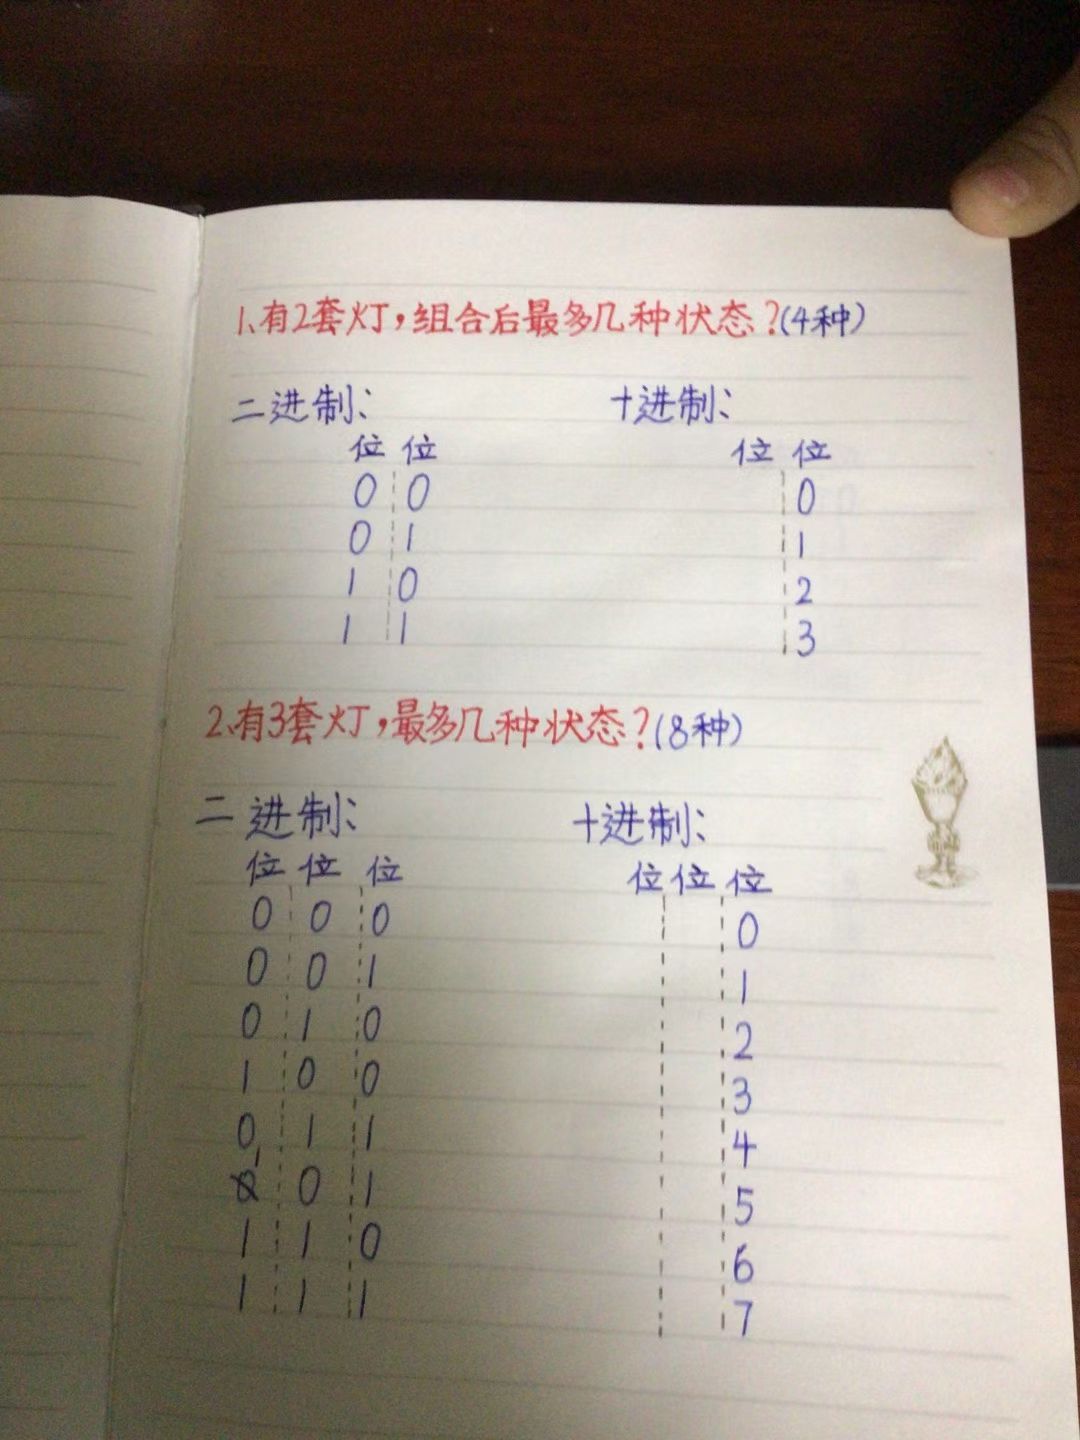 1、有2套灯，组合后最多几种状态？(4种)
二进制： 十进制：
位 位 位 位
0 0 0
0 1 1
1 0 2
1 1 3
2、有3套灯，最多几种状态？(8种)
二进制： 十进制：
位 位 位 位 位 位
0 0 0 0
0 0 1 1
0 1 0 2
1 0 0 3
0 1 1 4
1 0 1 5
1 1 0 6
1 1 1 7